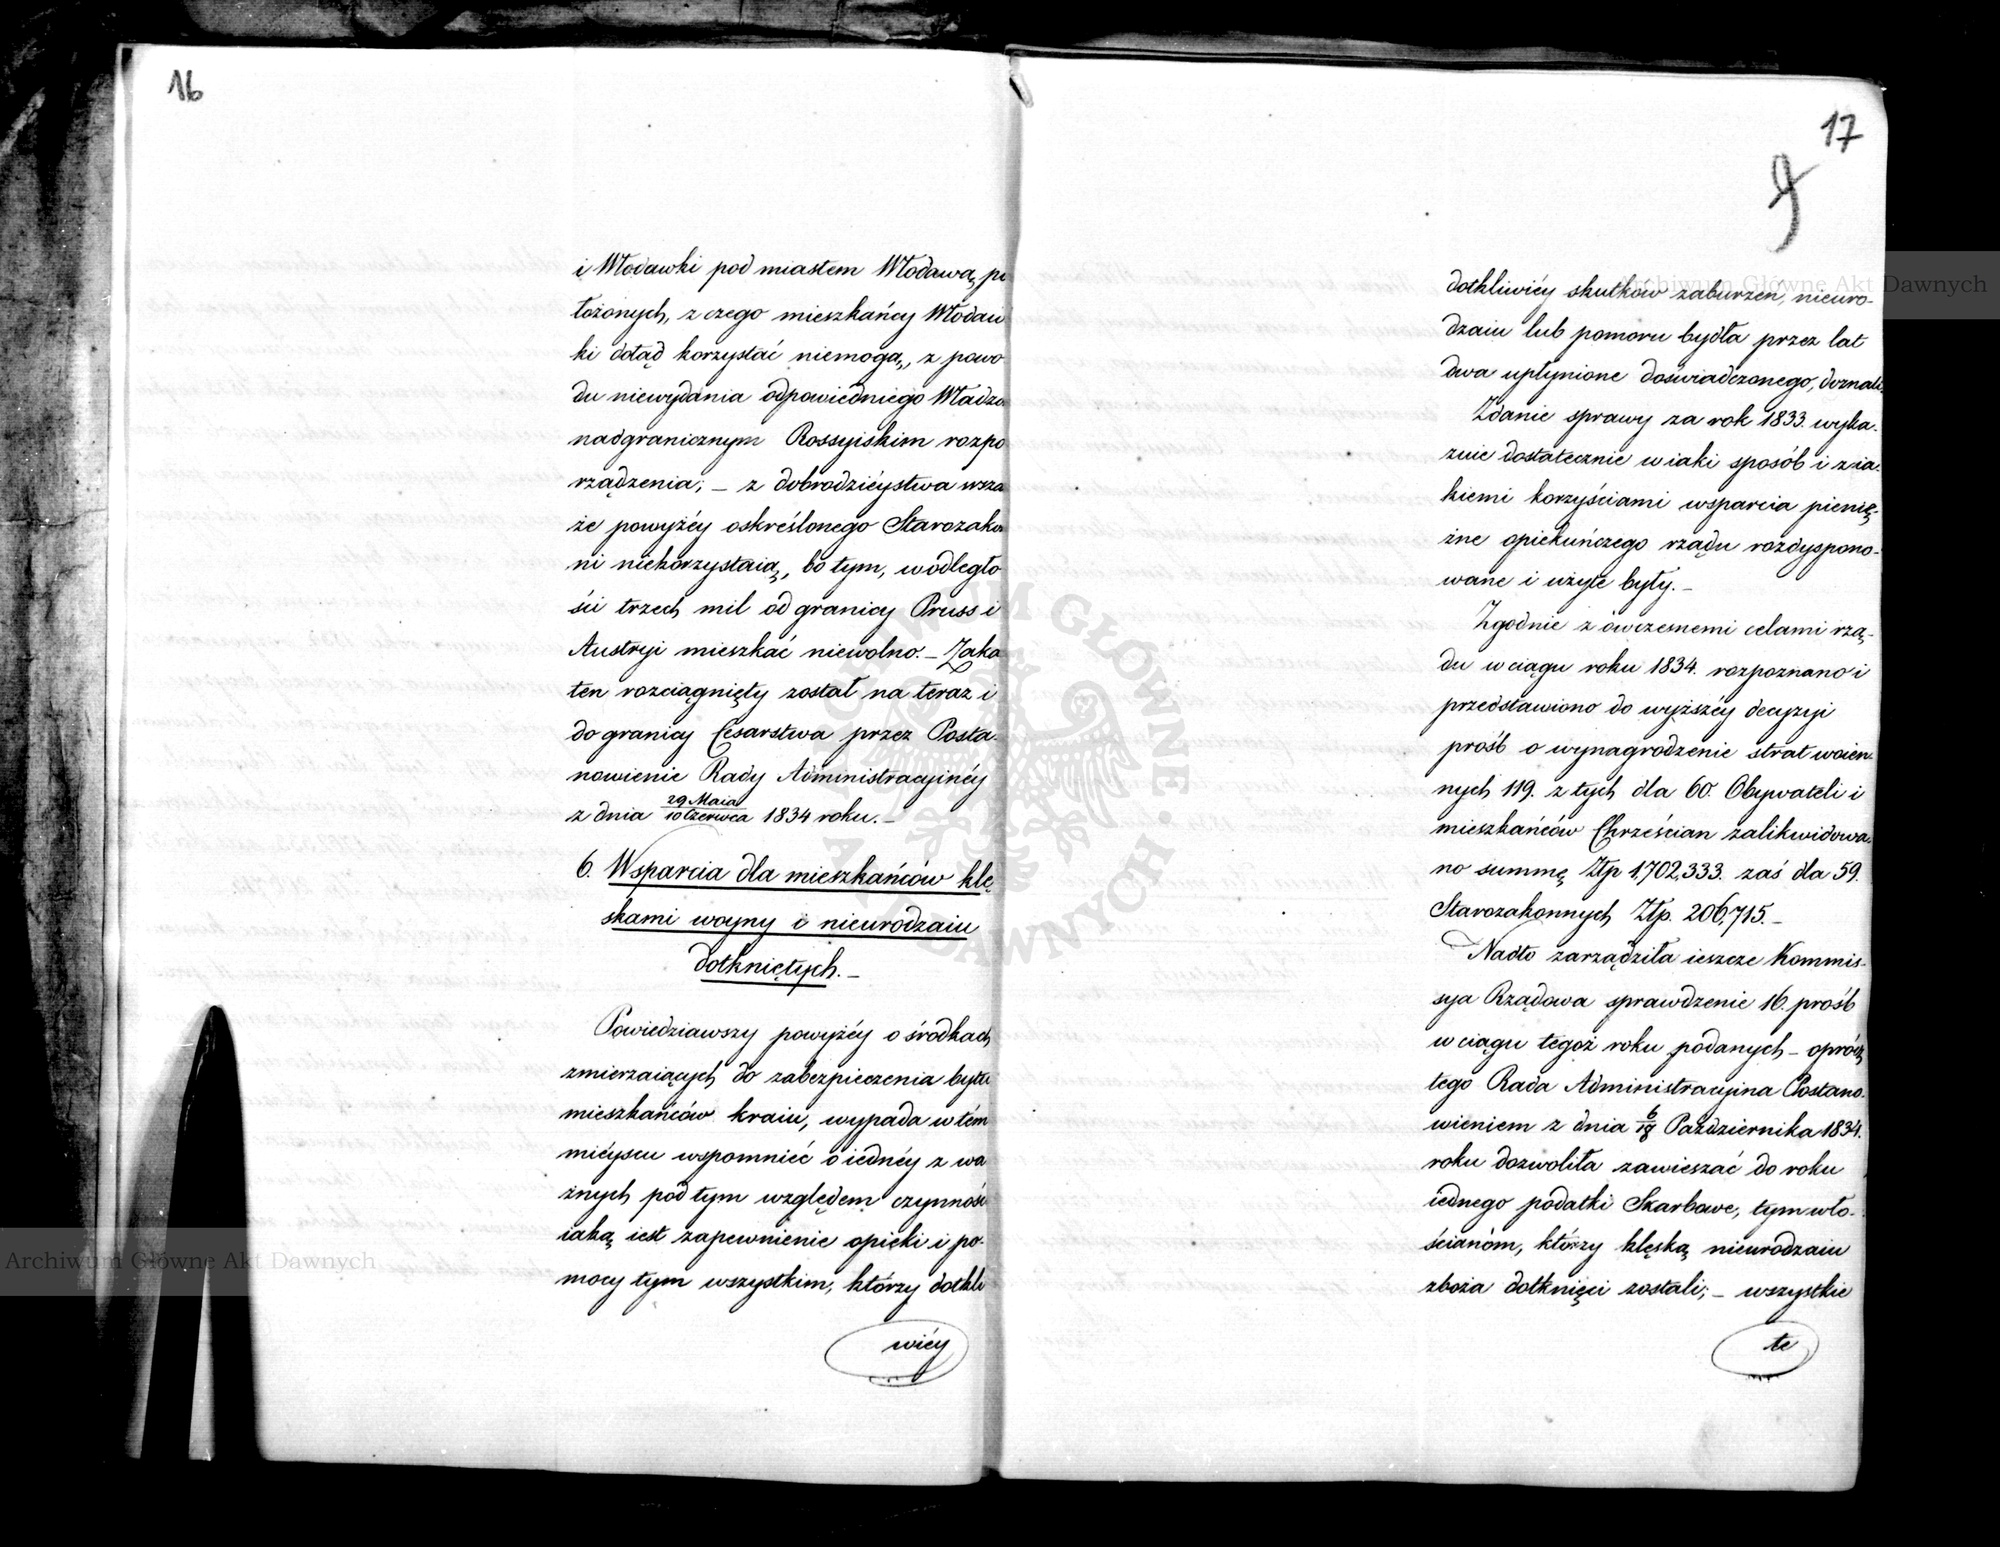 16
i Włodawki pod miastem Włodawą po
łożonych, z czego mieszkańcy Włodaw
ki dotąd korzystać niemogą, z powo
du niewydania odpowiedniego Władzo
nadgranicznym Rossyiskim rozpo
rządzenia; – z dobrodzićystwa wsza
że powyżéy oskreślonego Starozako
ni niekorzystaią, bo tym, w odległo
ści trzech mil od granicy Pruss i
Austryi mieszkać niewolno. – Zaka
ten rozciągnięty został na teraz i
do granicy Cesarstwa przez Posta-
nowienie Rady Administracyinéy
z dnia 29 Maia / 10 Czerwca 1834 roku. –
6. Wsparcia dla mieszkańców klę
skami woyny i nieurodzaiu
dotkniętych. –
Powiedziawszy powyżéy o środkach
zmierzaiących do zabezpieczenia bytu
mieszkańców kraiu, wypada w tém
miéyscu wspomnieć o iednéy z wa
żnych pod tym względem czynnośc
iaką iest zapewnienie opieki i po-
mocy tym wszystkim, którzy dotkli
wiéy
17
9
dotkliwiéy skutków zaburzeń, nieuro-
dzaiu lub pomoru bydła przez lat
dwa upłynione doświadczonego, doznali.
Zdanie sprawy za rok 1833. wyka-
zuie dostatecznie w iaki sposób i z ia-
kiemi korzyściami wsparcia pienię-
żne opiekuńczego rządu rozdyspono-
wane i użyte były. –
Zgodnie z ówczesnemi celami rzą-
du w ciągu roku 1834. rozpoznano i
przedstawiono do wyższéy decyzyi
prośb o wynagrodzenie strat woien-
nych 119. z tych dla 60. Obywateli i
mieszkańców Chrześcian zalikwidowa-
no summę Złp 1,702,333. zaś dla 59.
Starozakonnych Złp. 206,715. –
Nadto zarządziła ieszcze Kommis-
sya Rządowa sprawdzenie 16. prośb
w ciągu tegoż roku podanych – oprócz
tego Rada Administracyina Postano-
wieniem z dnia 6/18 Października 1834.
roku dozwoliła zawieszać do roku
iednego podatki Skarbowe, tym wło-
ścianom, którzy klęską nieurodzaiu
zboża dotknięci zostali; – wszystkie
te
Archiwum Główne Akt Dawnych
Archiwum Główne Akt Dawnych
ARCHIWUM GŁÓWNE AKT DAWNYCH